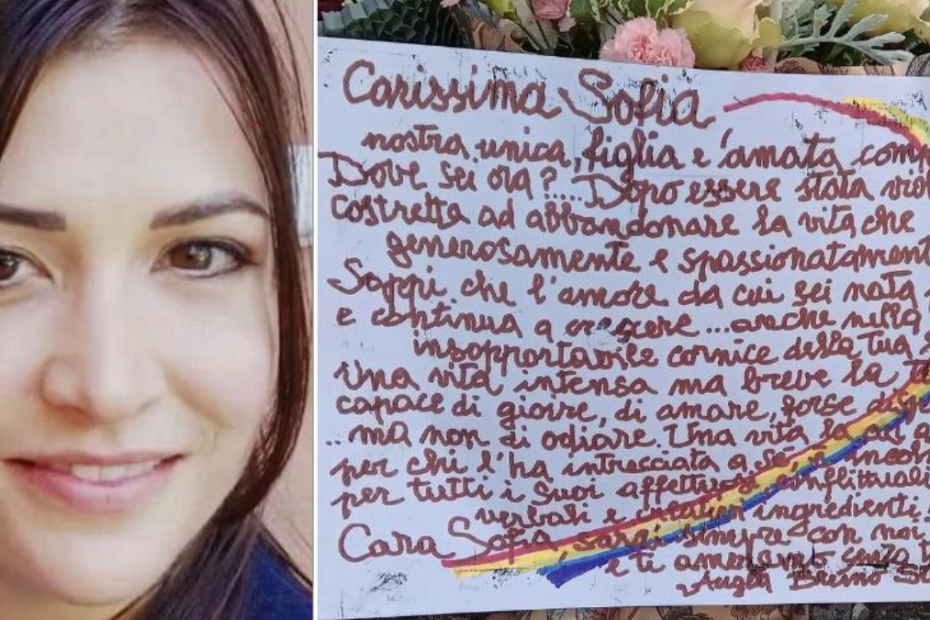 Carissima Sofia
nostra unica, figlia e amata
Dove sei ora?.... Dopo essere stata
costretta ad abbandonare la vita che
generosamente e spassionatament
Sappi che l'amore da cui sei nata
e continua a crescere ... anche nella
insopportabile cornice della tua
Una vita intensa ma breve la
capace di gioire, di amare, forse
.. ma non di odiare. Una vita la
per chi l'ha intrecciata a se,
per tutti i suoi
verbali e ingredienti
Cara Sofia, sarai sempre con noi
e ti amo senza
Bruno